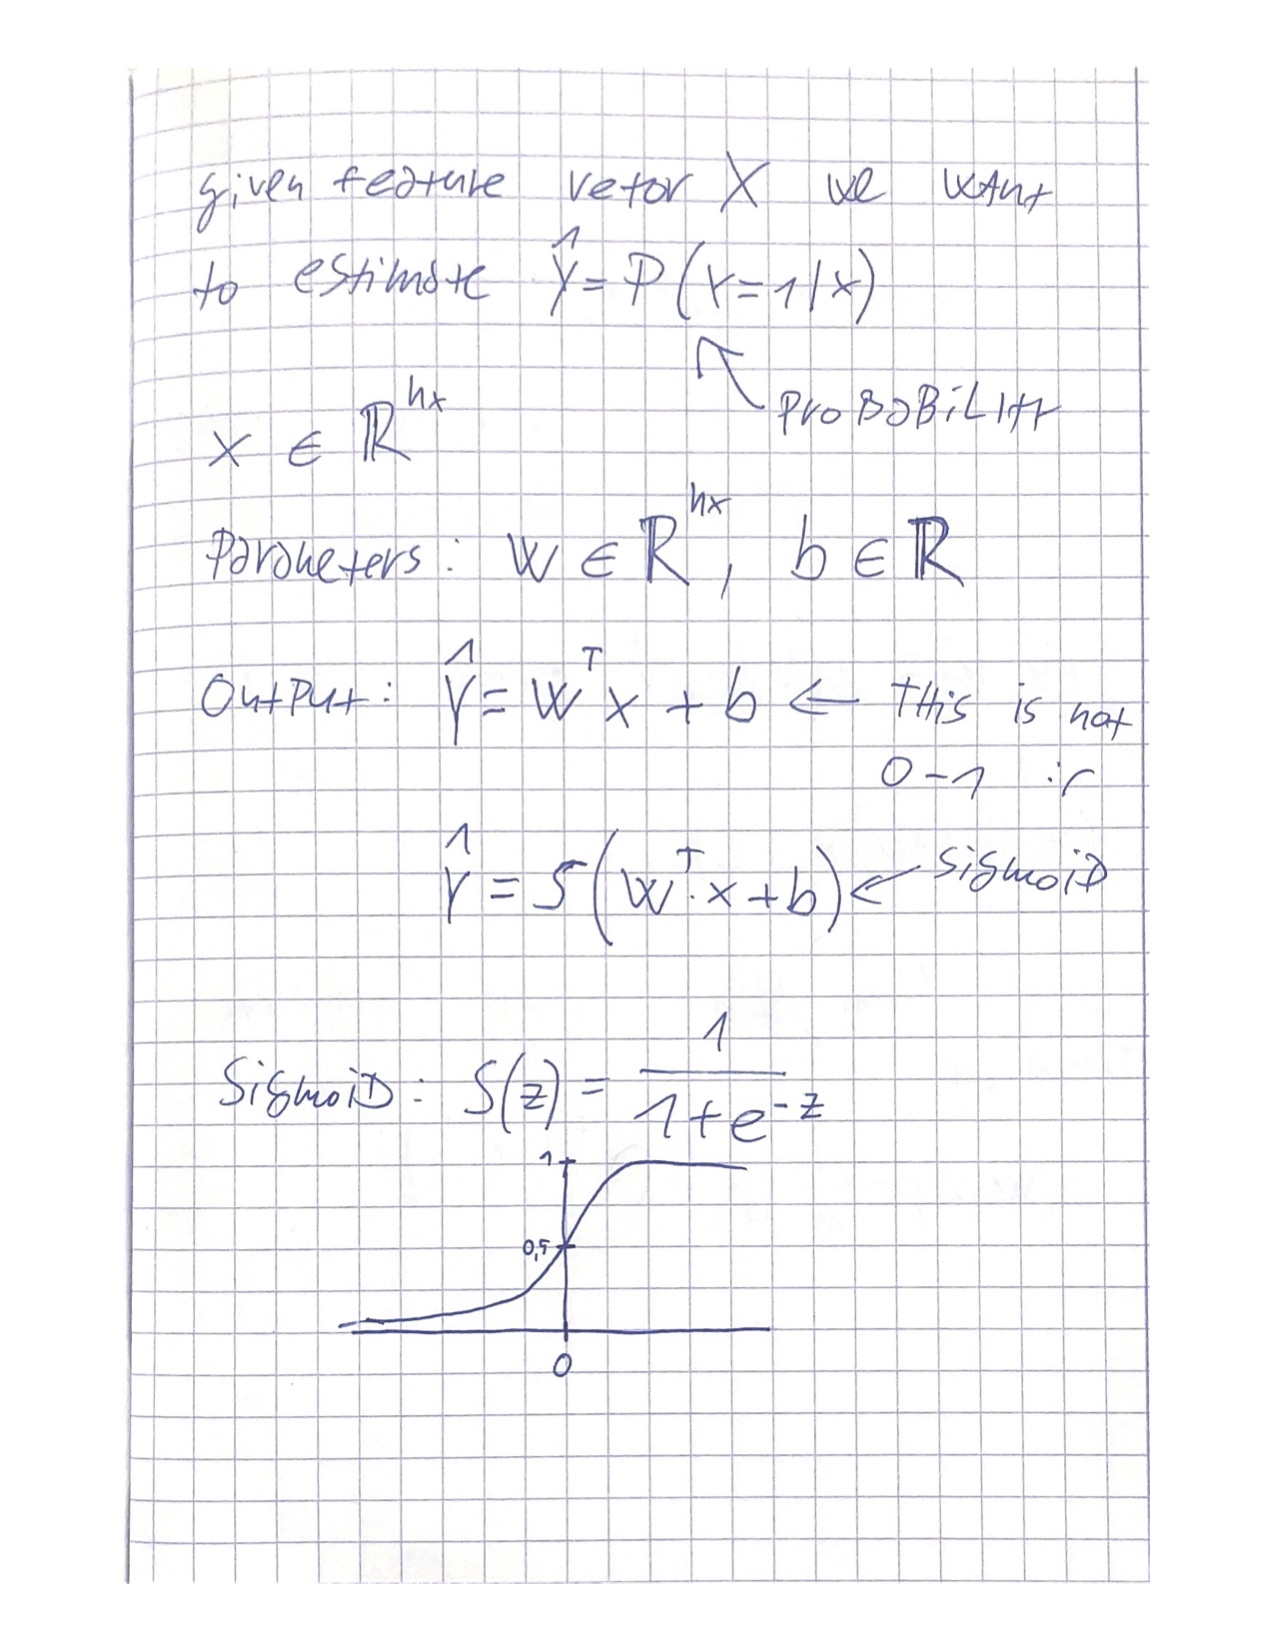 given feature vetor X we want
to estimate Ŷ = P(Y=1|x)
PROBABILITY
x ∈ ℝ^nx
Parameters: w ∈ ℝ^nx, b ∈ ℝ
Output: Ŷ = w^T x + b ← THis is not
0-1 :(
Ŷ = S(w^T · x + b) ← SigmoiD
SigmoiD: S(z) = 1 / (1 + e^-z)
1
0,5
0